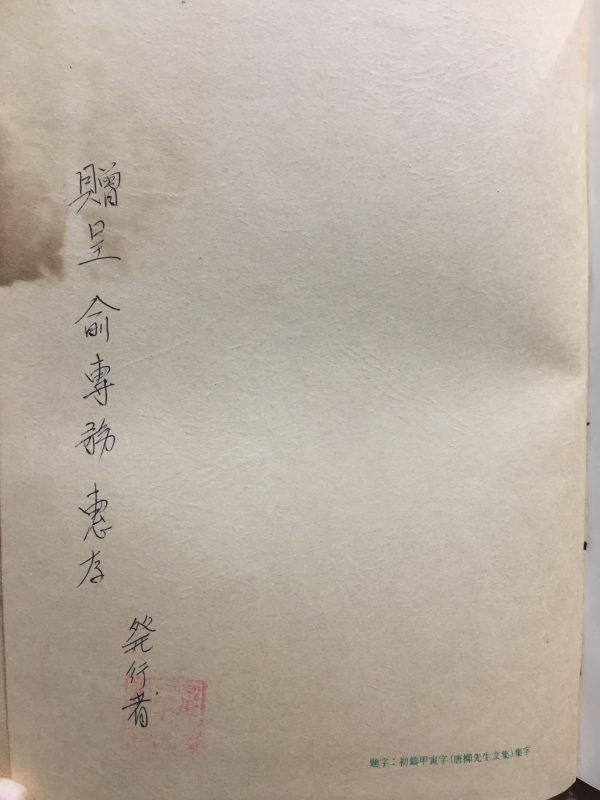 贈呈 俞專務 惠存
発行者
題字：初鑄甲寅字(唐柳先生文集)集字